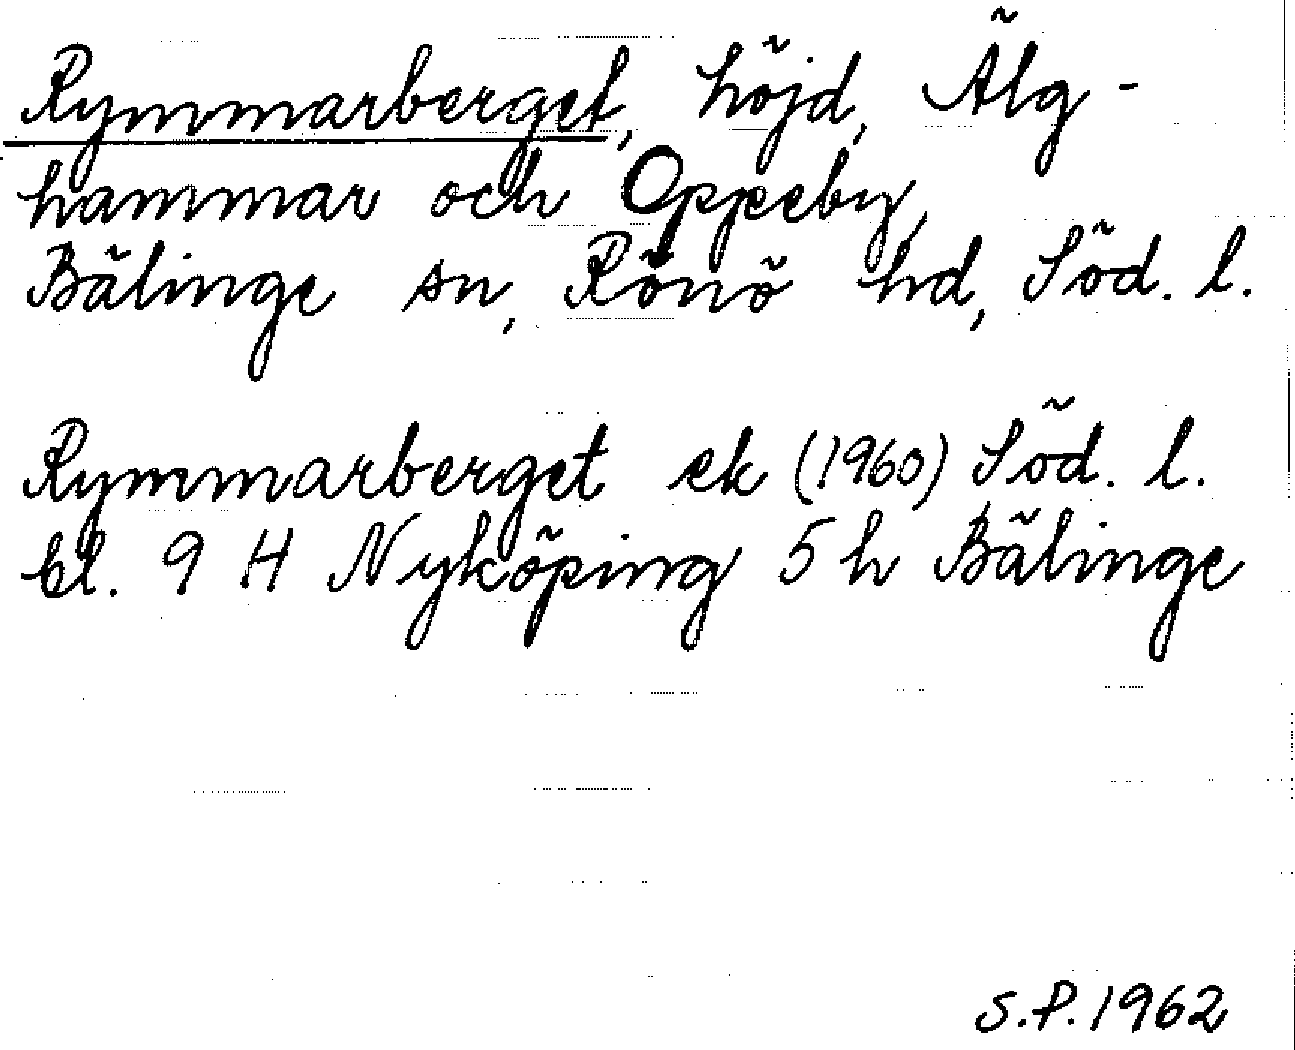 Rymmarberget, höjd, Älg-
hammar och Oppeby,
Bälinge sn, Rönö hd, Söd. l.
Rymmarberget ek (1960) Söd. l.
bl. 9 H Nyköping 5 h Bälinge
S.P. 1962